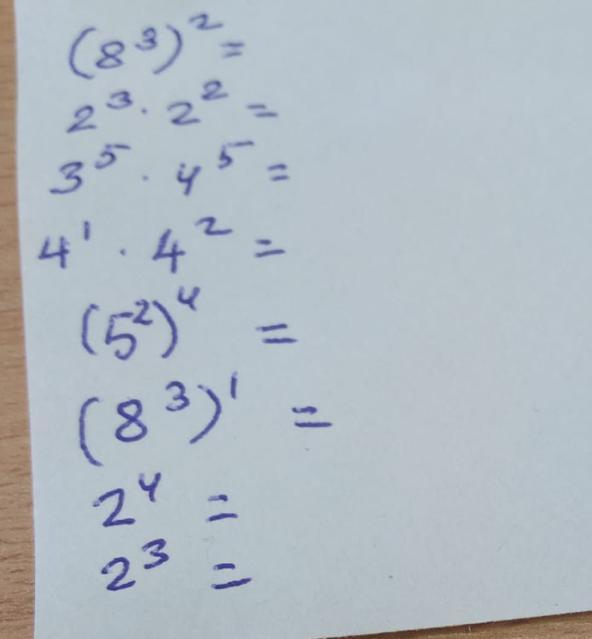 (8³)² =
2³ · 2² =
3⁵ · 4⁵ =
4¹ · 4² =
(5²)⁴ =
(8³)¹ =
2⁴ =
2³ =